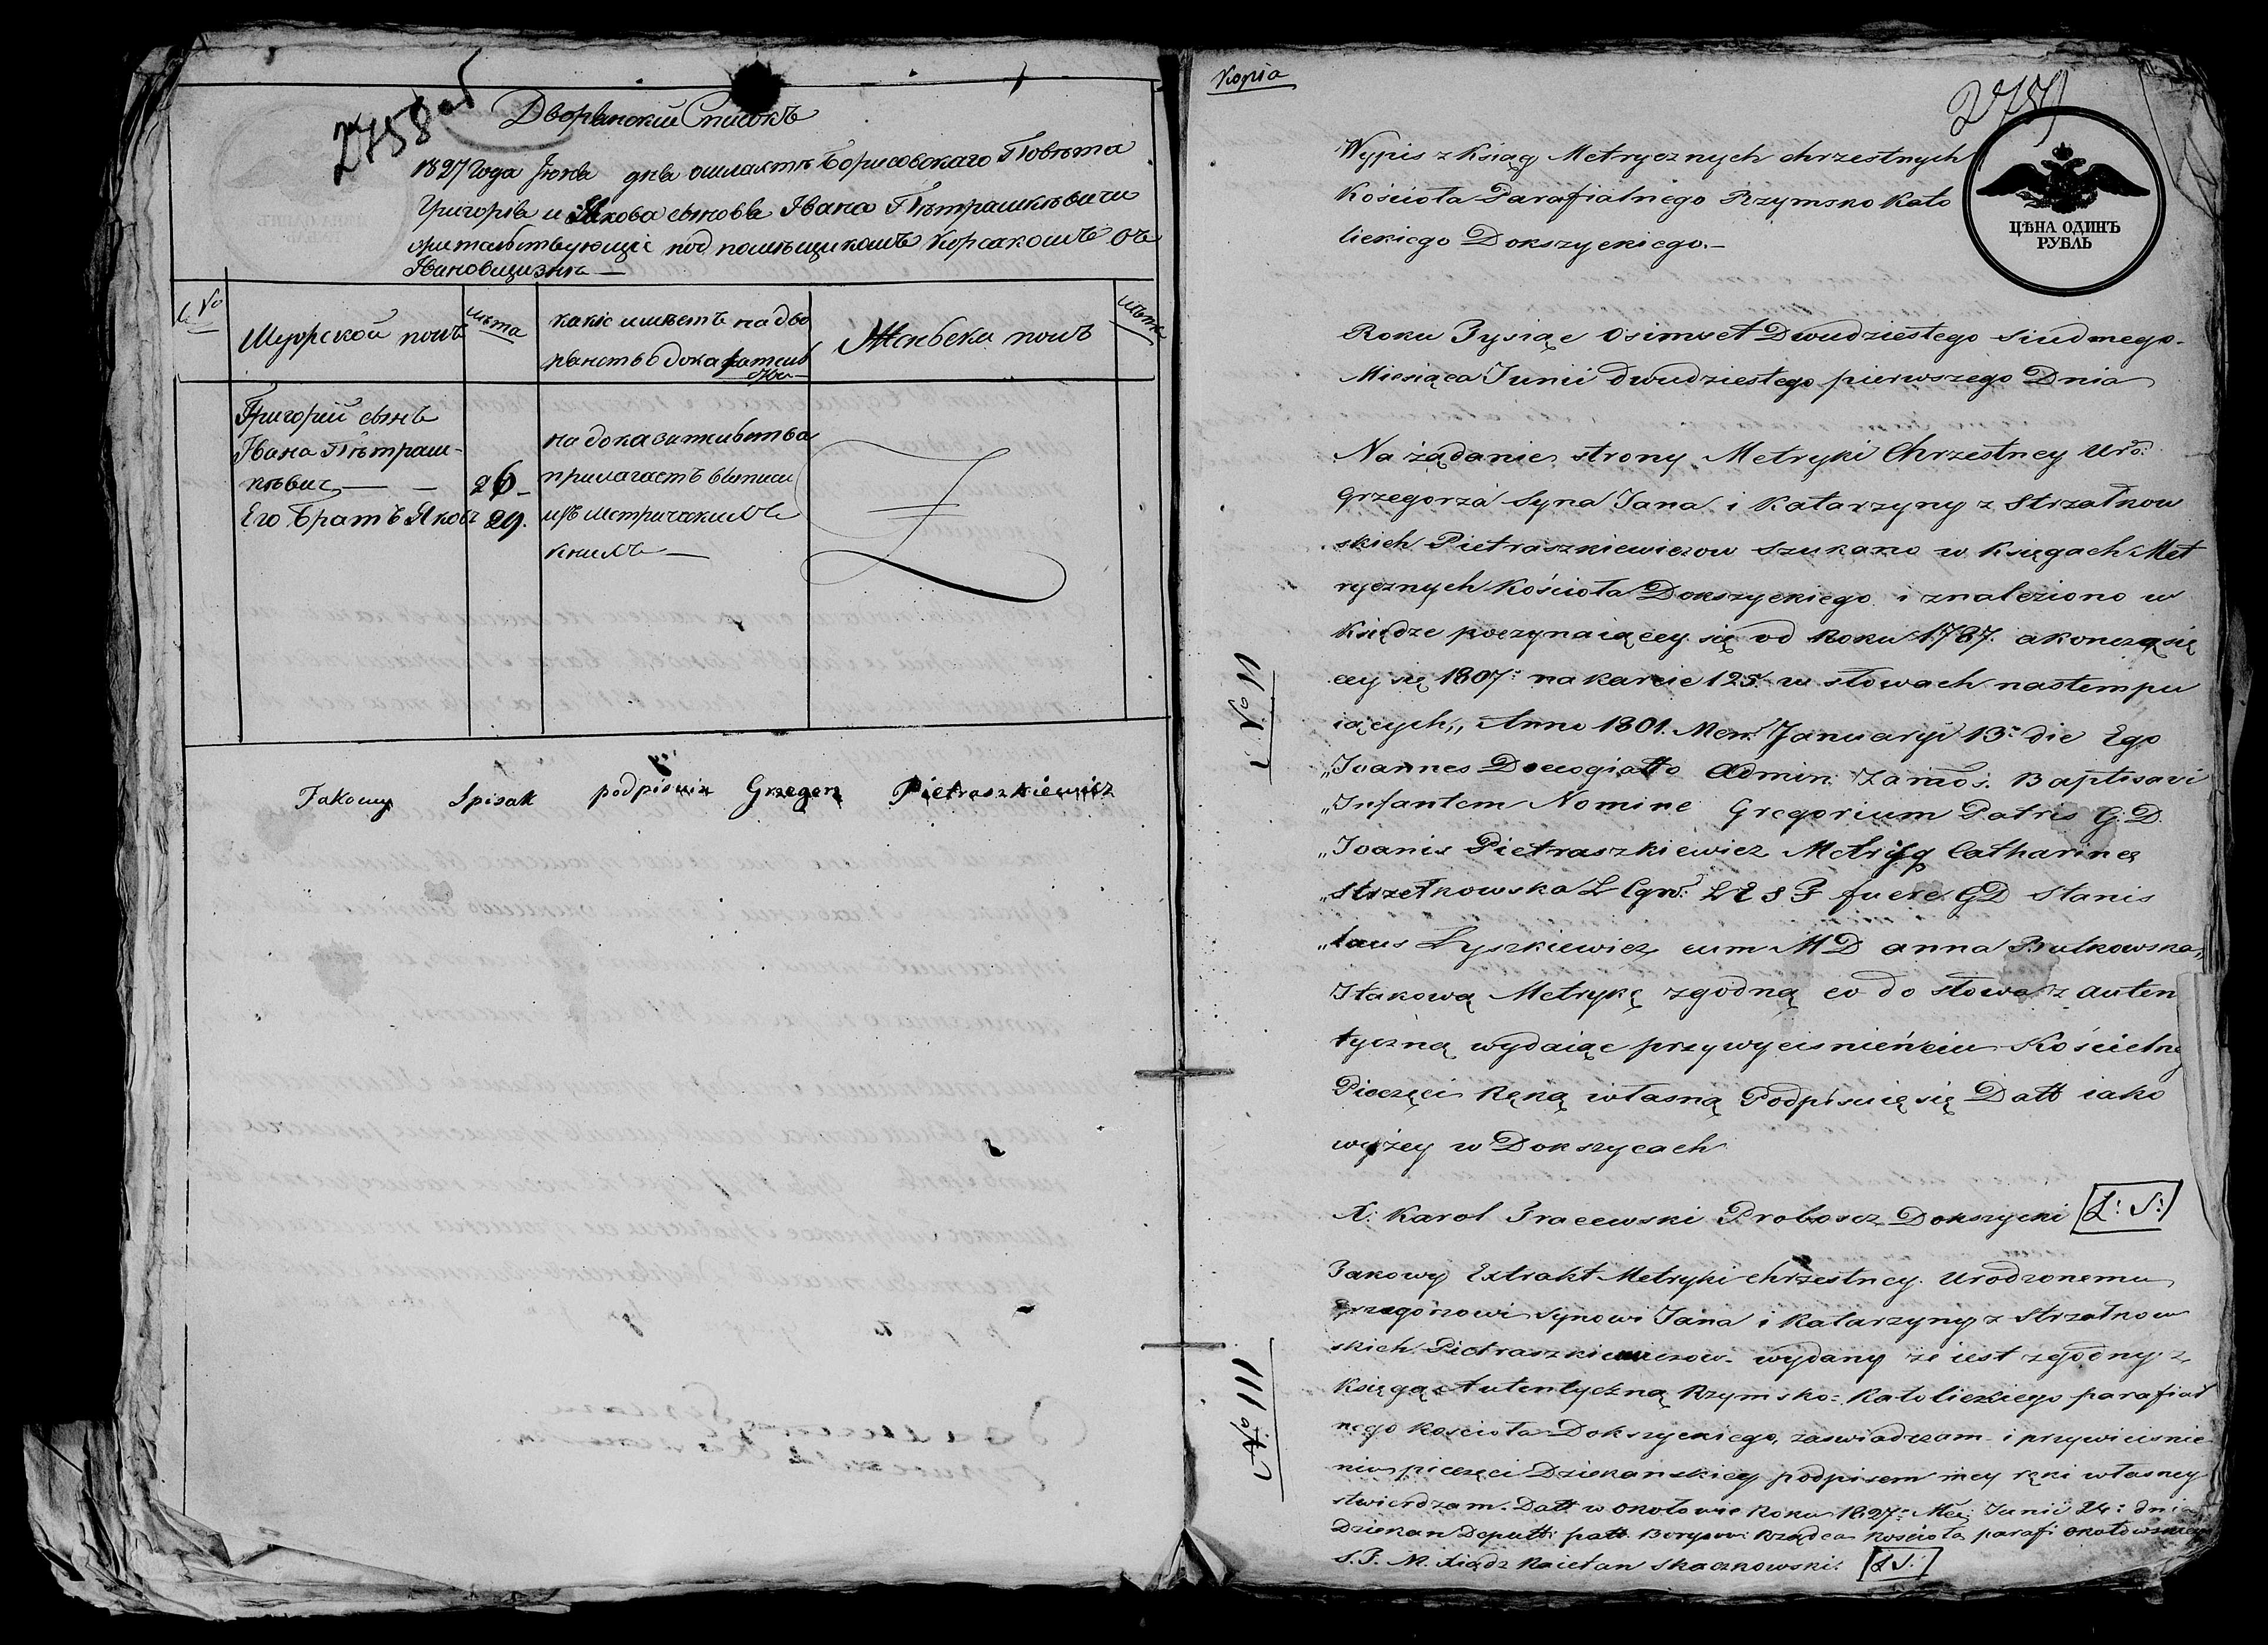 2758 об
Дворянский Списокъ
1827 года Июня дня о шляхте Борисовского Повѣта
Григорія и Якова сыновья Ивана Пѣтрашкѣвичи
жительствующіе под помѣщикомъ Корсакомъ въ
Ивановщизнѣ —
№
Мужской полъ
лѣта
какіе имѣетъ на дво
рянство доказатель
ства
Женскій полъ
лѣта
Григорий сынъ
Ивана Пѣтраш-
кѣвич — —
26 —
Его Братъ Яковъ 29.
на доказательства
прилагаетъ выписи
изъ метрическихъ
книхъ —
Takowy Spisak podpisuia Grzegorz Pietraszkiewicz
Kopia
2759
ЦѢНА ОДИНЪ
РУБЛЬ
Wypis z Ksiąg Metrycznych chrzestnych
Kościoła Parafialnego Rzymsko Kato
lickiego Dokszyckiego. —
Roku Tysiąc Osimset Dwudziestego Siudmego.
Miesiąca Junii dwudziestego pierwszego Dnia
Na żądanie strony Metryki Chrzestney Uro:
Grzegorza Syna Jana i Katarzyny z Strzałkow
skich Pietraszkiewiczow szukano w Księgach Met
rycznych Kościoła Dokszyckiego i znaleziono w
Księdze poczynaiącey się od Roku 1787. a konczą się
cey się 1807: na karcie 125. w słowach nastempu
№ II
iących,, Anno 1801. Men: Januaryi 13: die Ego
„Joannes Docogiatto Admin: Zamoś. Baptisavi
„Infantem Nomine Gregorium Patris G: D.
„Joanis Pietraszkiewicz Metrisq Catharinea
„Strzełkowska L Cgw: L L S P fuere GD Stanis
„laus Łyszkiewicz cum M D anna Rutkowska,,
Itakową Metrykę zgodną co do słowa z auten
tyczną wydaiąc przy wycisnieńciu Kościelney
Pieczęci Ręką własną Podpisuię się Datt iako
wyżey w Dokszycach
X: Karol Tracewski Proboscz Dokszycki L: S:
Takowy Extrakt Metryki chrzestney Urodzonemu
Grzegorzowi synowi Jana i Katarzyny z Strzałkow
skich Pietraszkiewiczow. wydany że iest zgodny z
Księgą Autentyczną Rzymsko-Katolickiego parafiał
№ III
nego Kościoła Dokszyckiego, zaswiadczam i przy wicisnie
niu pieczęci Dziekanskiey podpisem mey ręki własney
stwierdzam. Datt w Okołowie Roku 1827: Mca: Junii 24: dnia
Dziekan Deputt: patt Borysow: Rządca Kościoła parafi Okołowskiey
S. T. M. Xiądz Kaietan Skaczkowski. L S: